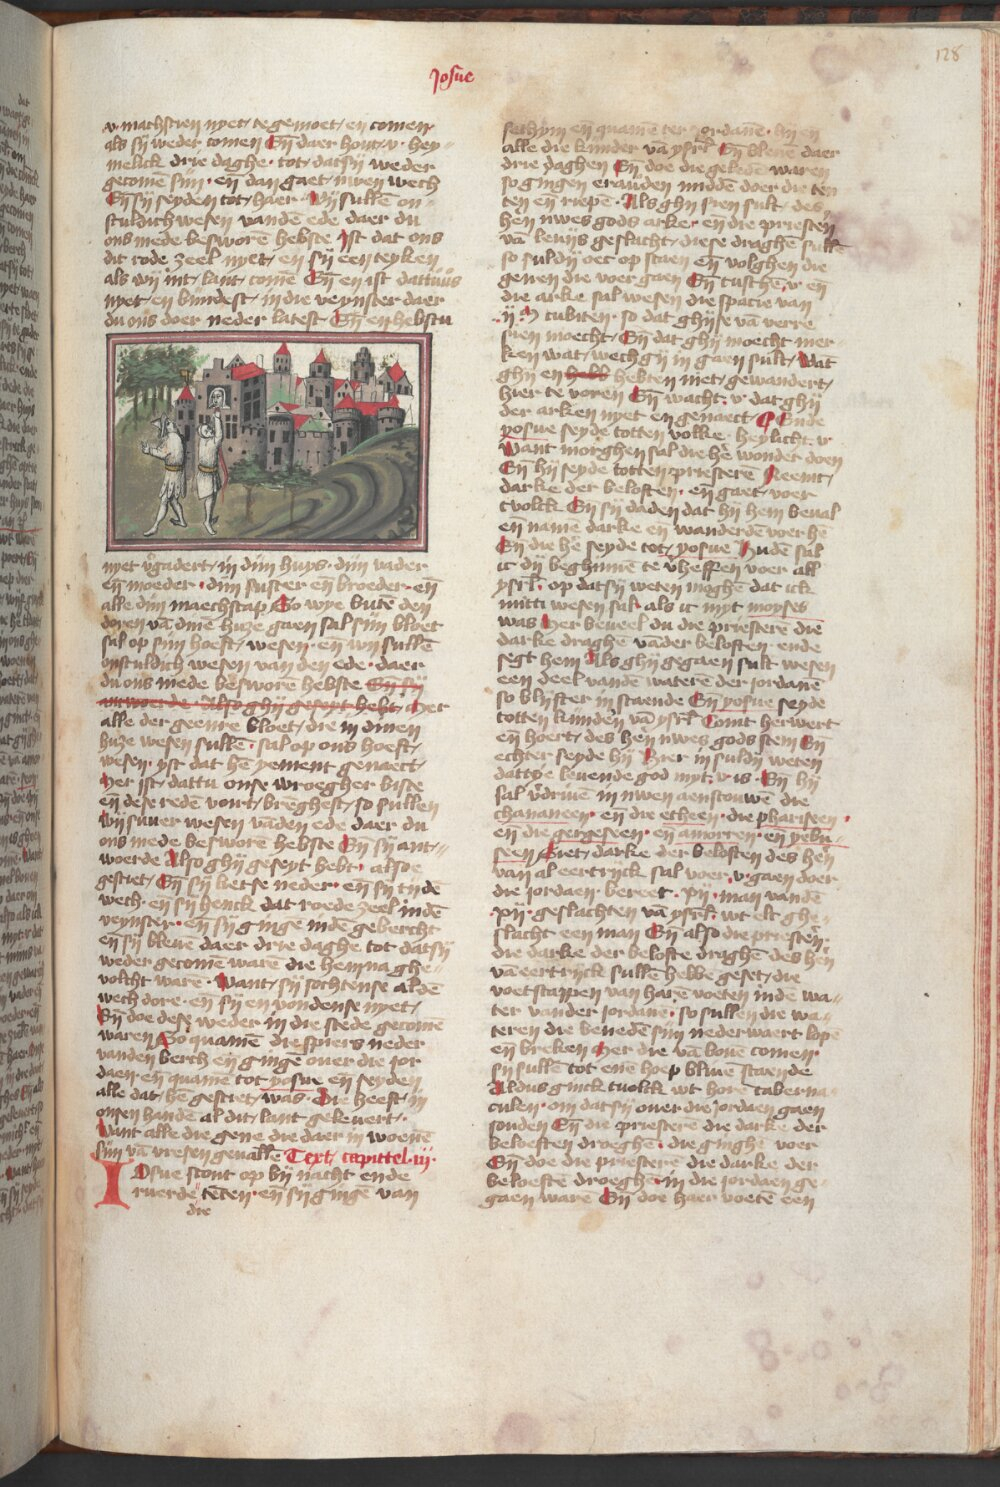 128
Josue
v machscien nyet tegemoet en̄ comen
als sy weder comen En̄ daer hout v hey-
melick drie daghe tot datsy weder
gecomē sijn en̄ dan gaet uwen wech
En̄ sy seyden tot haer Wij sullē on-
sculdich wesen vanden ede daer du
ons mede besworē hebste Ist dat ons
dit rode zeel nyet en sy een teyken
als wij int lant comē En̄ en ist dattuus
nyet en bindest in die veynster daer
du ons doer neder latest En̄ en hebstu
nyet v̄gadert in dijn huys dijn vader
en̄ moeder dijn suster en̄ broeder en̄
alle dijn maechscap So wye butē den
doren vā dinē huze gaen sal sijn bloet
sal op sijn hoeft wesen en̄ wij sullē
onsculdich wesen van den ede daer
du ons mede besworē hebste En̄ sy
antwoerde Also ghij geseyt hebt Mer
alle der geenre bloet die in dinen
huze wesen sullē sal op ons hoeft
wesen yst dat hē yement genaect
Mer ist dattu onse wroegher biste
en̄ dese redē vort brēghest so sullen
wij suuer wesen vāden ede daer du
ons mede besworē hebste En̄ sy ant-
woerde Also ghij geseyt hebt alsoe
gesciet En̄ sy lietse neder en̄ sy tydē
wech en̄ sy henck dat roede zeel indē
veynster en̄ sy gingē indē gebercht
en̄ sy bleuē daer drie daghe tot datsy
weder gecomē warē die hem na ghe-
volcht warē Want sy sochtense al dē
wech dore en̄ sy en vondense nyet
En̄ doe dese weder in die stede gecomē
waren So quamē die spiers neder
vanden berch en̄ gingē ouer die jor
daen en̄ quamē tot yosue en̄ seyden
alle dat hē gesciet was Die heeft in
onsen handē al dit lant geleuert
Want alle die gene die daer in woenē
sijn vā vresen geuallē Text capittel iij
IOsue stont op bij nacht ende
ruerde tētē en̄ sy gingē van
die
sethym en̄ quamē ter Jordanē hij en̄
alle die kinder vā ysrl̄ En̄ bleuē daer
drie daghen En̄ doe die geledē waren
so gingen erauden middē doer die ten
ten en̄ riepē Als ghij sien sult des
hēn uwes gods arke en̄ die priesten
vā leuijs geslacht diese draghē sullē
so suldij oec op staen En̄ volghen die
genen die voer gaen En̄ tusschē v en̄
die arke sal wesen die spacie van
ij M cubiten so dat ghijse vā verre
sien moecht En̄ dat ghij moecht mer-
ken wat wech gij in gaen sult Wat
ghij en hebt hebten niet gewandert
hier te voren En̄ wacht v dat ghij
der arken nyet en genaect Ende
yosue seyde totten volke heylicht v
Want morghen sal die hē wonder doen
En̄ hij seyde totten priesterē Neemt
darke der beloften en̄ gaet voer
tvolck En̄ sy daden dat hij hem beual
en̄ namē darke en̄ wanderdē voer hē
En̄ die hē seyde tot yosue Hudē sal
ic dij beghinnē te v̄heffen voer all
ysrl̄ op datsy weten moghē dat ick
mitti wesen sal als ic myt moyses
was Mer beueel du die priesterē die
darke draghē vāder beloften ende
segt hem Als ghij gegaen sult wesen
een deel vandē waterē der jordanē
so blijfster in staende En̄ yosue seyde
totten kinnden vā ysrl̄ Comt herwert
en̄ hoert des hēn uwes gods stem En̄
echter seyde hij Hier in suldij weten
dattye leuende god myt v is En̄ hij
sal v̄driuē in uwen aenscouwē die
chananeen en̄ die etheen die phariseen
en̄ die gergeseen en̄ amorren en̄ yebu-
seen Siet darke der beloften des hēn
van al eertrijck sal voer v gaen doer
die jordaen bereet xij man vandē
xij geslachten vā ysrl̄ wt elc ghe-
slacht een man En̄ also die priesterē
die darke der belofte draghē des hēn
vā eertrijck sullē hebbē geset die
voetstappen van harē voeten indē wa-
ter vander jordanē so sullen die wa-
teren die benedē sijn nederwaert lopē
en̄ breken Mer die vā bouē comen
sy sullē tot enē hoep bliuē staende
Aldus ginck tvolck wt horē taberna-
culen om datsy ouer die jordaen gaen
souden En̄ die priesterē die darke der
beloeften droeghē die ginghē voer
En̄ doe die priesterē die darke der
beloeftē droeghē in die jordaen ge-
gaen warē En̄ doe haer voetē een